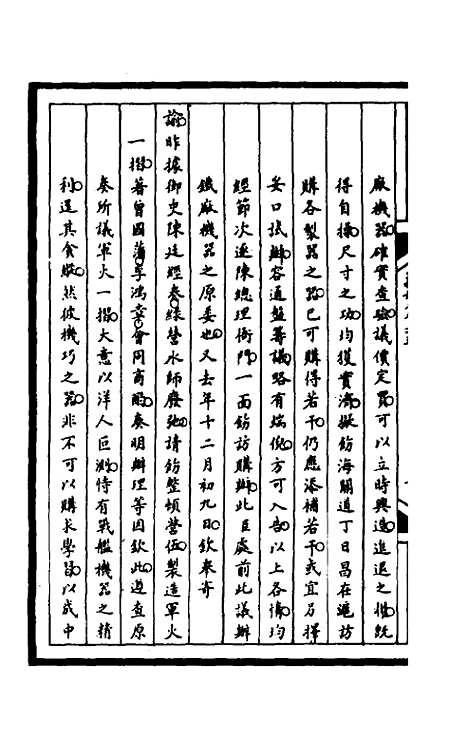 廠機器確實查驗議價定買可以立時興造進退之權既
得自操尺寸之功均獲實濟擬飭海關道丁日昌在滬訪
購各製器之器已可購得若干仍應添補若干或宜另擇
妥口試辦容通盤籌議略有端倪方可入告以上各情均
經節次逐陳總理衙門一面飭訪購辦此臣處前此議辦
鐵廠機器之原委也又去年十二月初九日欽奉寄
諭昨據御史陳廷經奏綠營水師廢弛請飭整頓營伍製造軍火
一摺著曾國藩李鴻章會同商酌奏明辦理等因欽此遵查原
奏所議軍火一摺大意以洋人巨測恃有戰艦機器之精
利逞其貪縱然彼機巧之器非不可以購求學習以成中